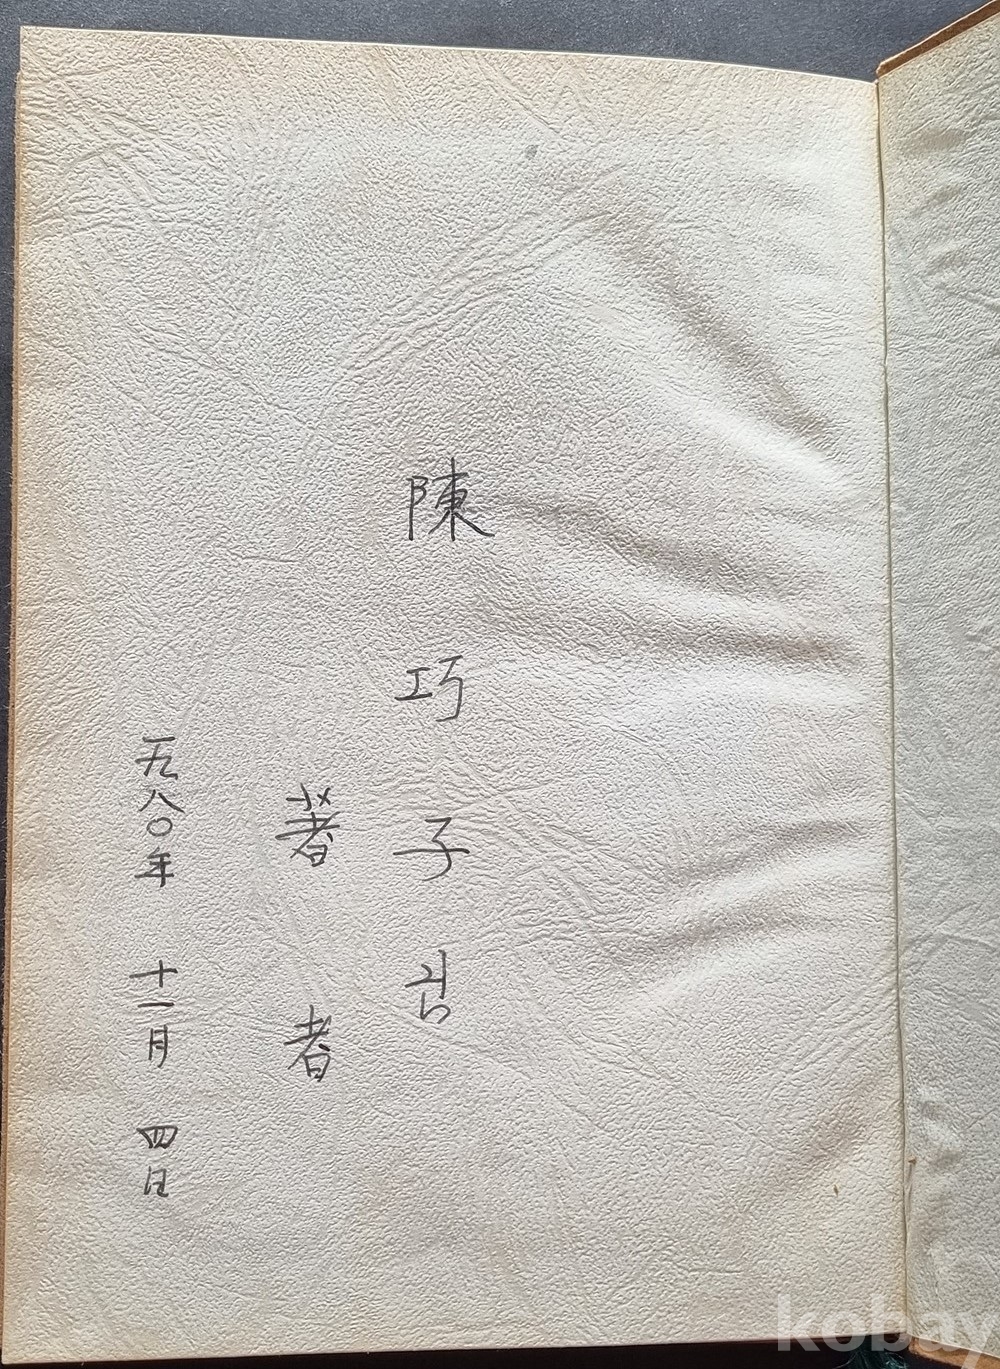 陳巧子님
著者
一九八〇年 十一月 四日
kobay